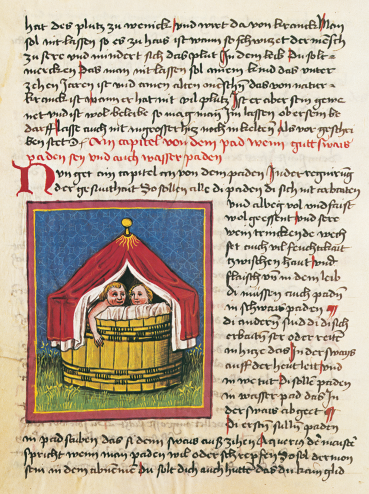 hat des plutz zu wenick und wirt da von kranck Man
sol nit lassen so es zu haiß ist wann so schwitzet der mensch
zu sere und mindert sich das plut In dem leib Du solt
mercken das man nit lassen sol ainem kind das unter
zehen Jaren ist und ainen alten menschen das von natur
kranck ist wann er hat nit vil plutz Ist er aber sein gewe
net und ist wol beleibt so mag man Im lassen ob er sein be
darff Lasse auch nit in grosser hitz noch in kelten Als vor geschri
ben stet Ain capitel von dem pad wenn gutt swais
paden sey und auch wasser paden
Nun get ain capitel an von dem paden In der regirung
der gesunthait So sollen alle die paden di sich nit arbaiten
und albeg vol und faist
wol geessent und sere
wein trinckende wech
set auch vil feuchtikait
zwischen haut und
flaisch und in dem leib
di müssen auch paden
in schwais paden
di andern sind di sich
erbaiten ser oder reiten
in hitze das In der swais
auff der heut leit und
in we tut Di solle paden
in wasser pad das In
der swais abgeet
di ersten sullen paden
in padstuben das si denn swais auß zihen
spricht wenn man paden wil oder schrepfen So sol der mon
sein in dem Du solt dich auch hutten das du kain glid